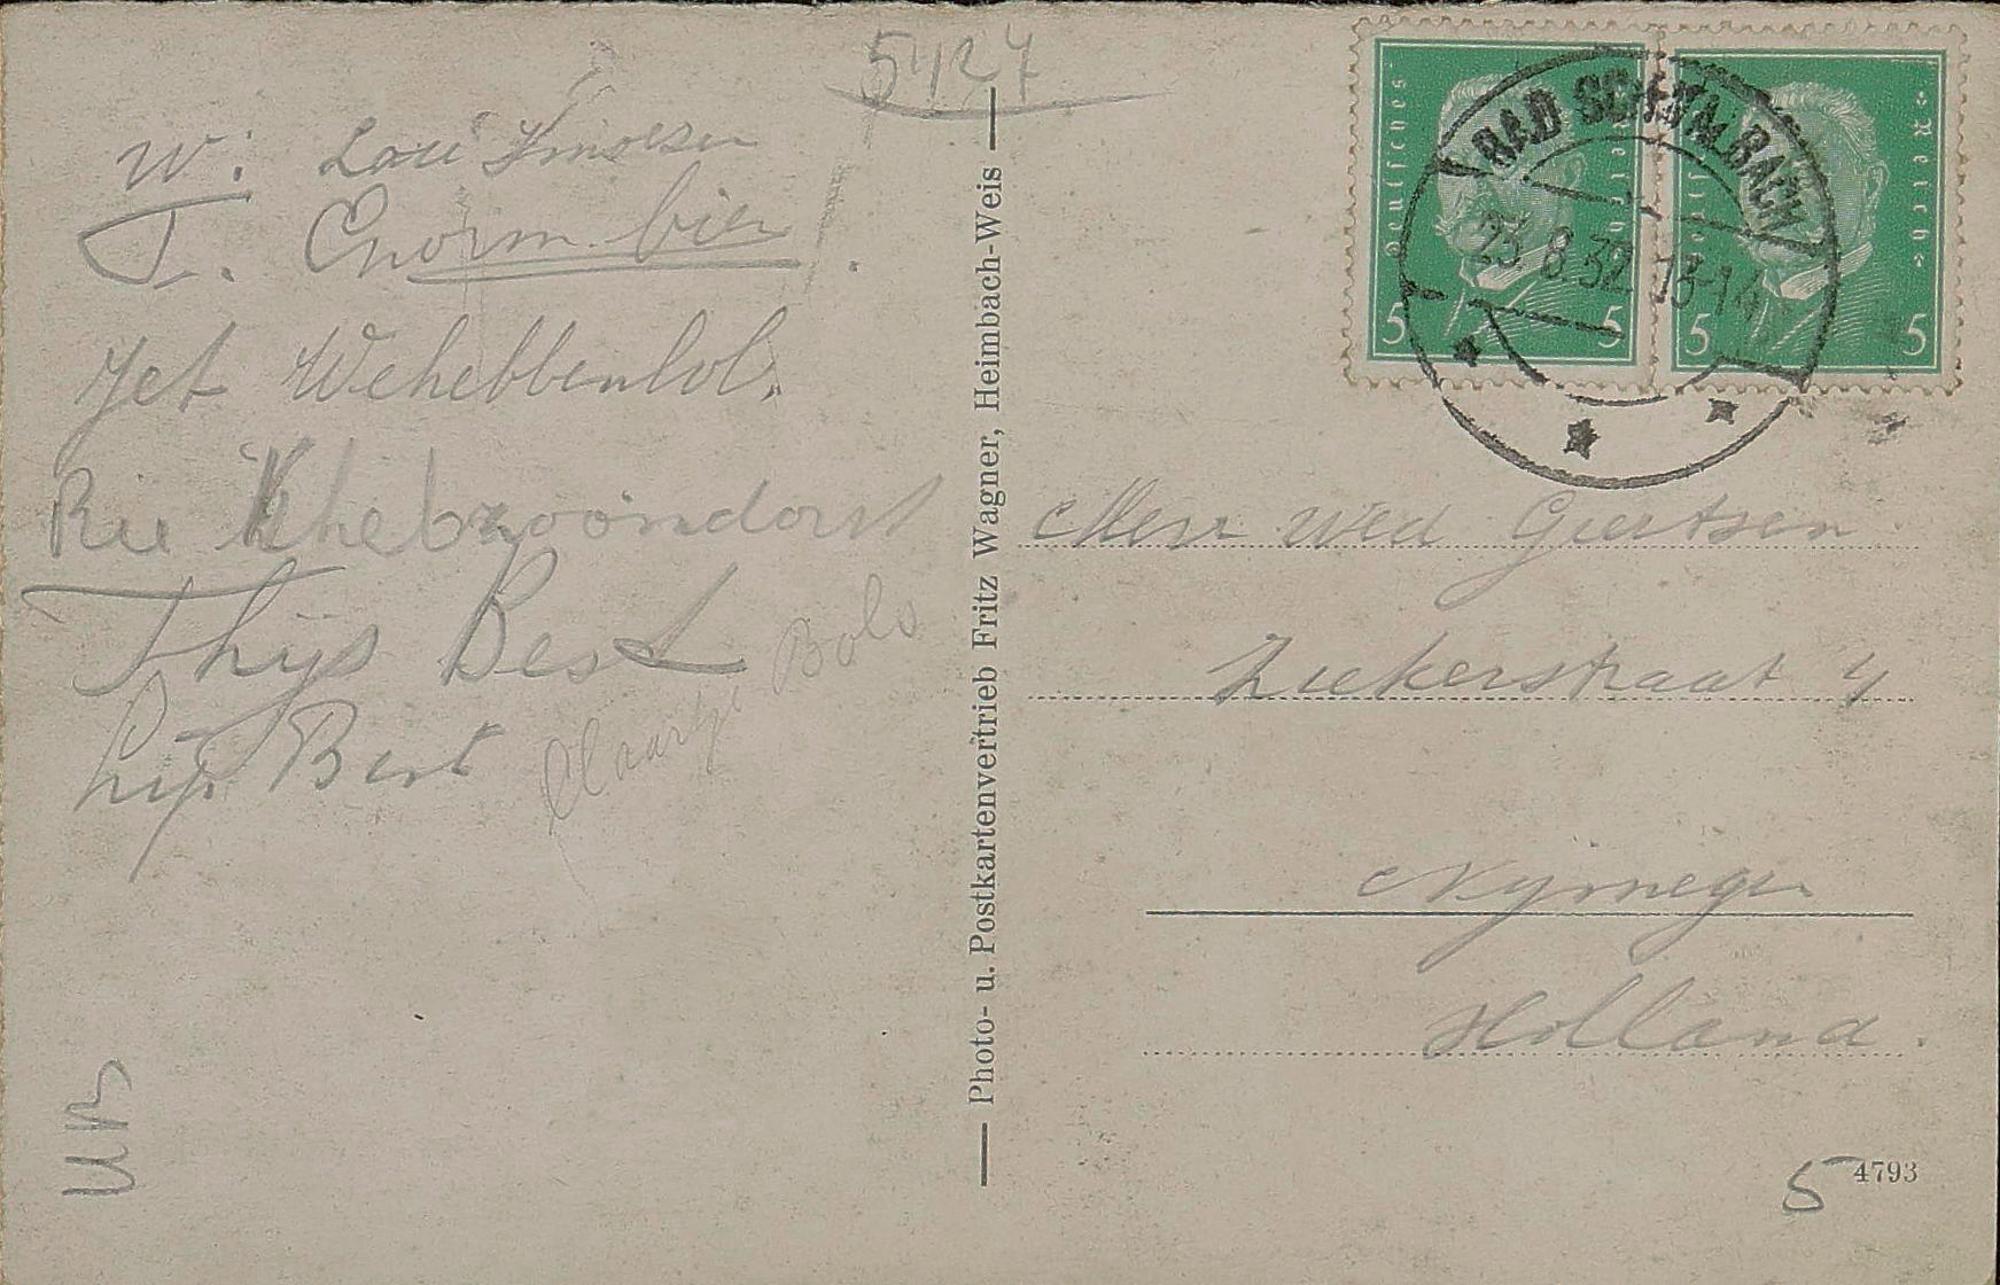 5427
W: Lou
T. Enorm bier.
Jet Wehebbenlol.
Rie Khebzoondorst
Thijs Best
Gijs Bert
Claartje Bols
UB
Photo- u. Postkartenvertrieb Fritz Wagner, Heimbach-Weis
Deutsches Reich
5 5
Deutsches Reich
5 5
BAD SCHWALBACH
23.8.32. 13-14
Mevr Wed Geertsen
Ziekerstraat 4
Nijmegen
Holland.
5
4793